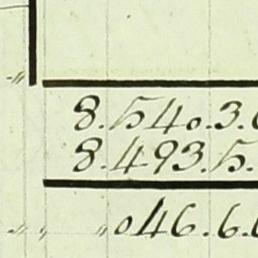 8.540.3.
8.493.5.
„ „046.6.